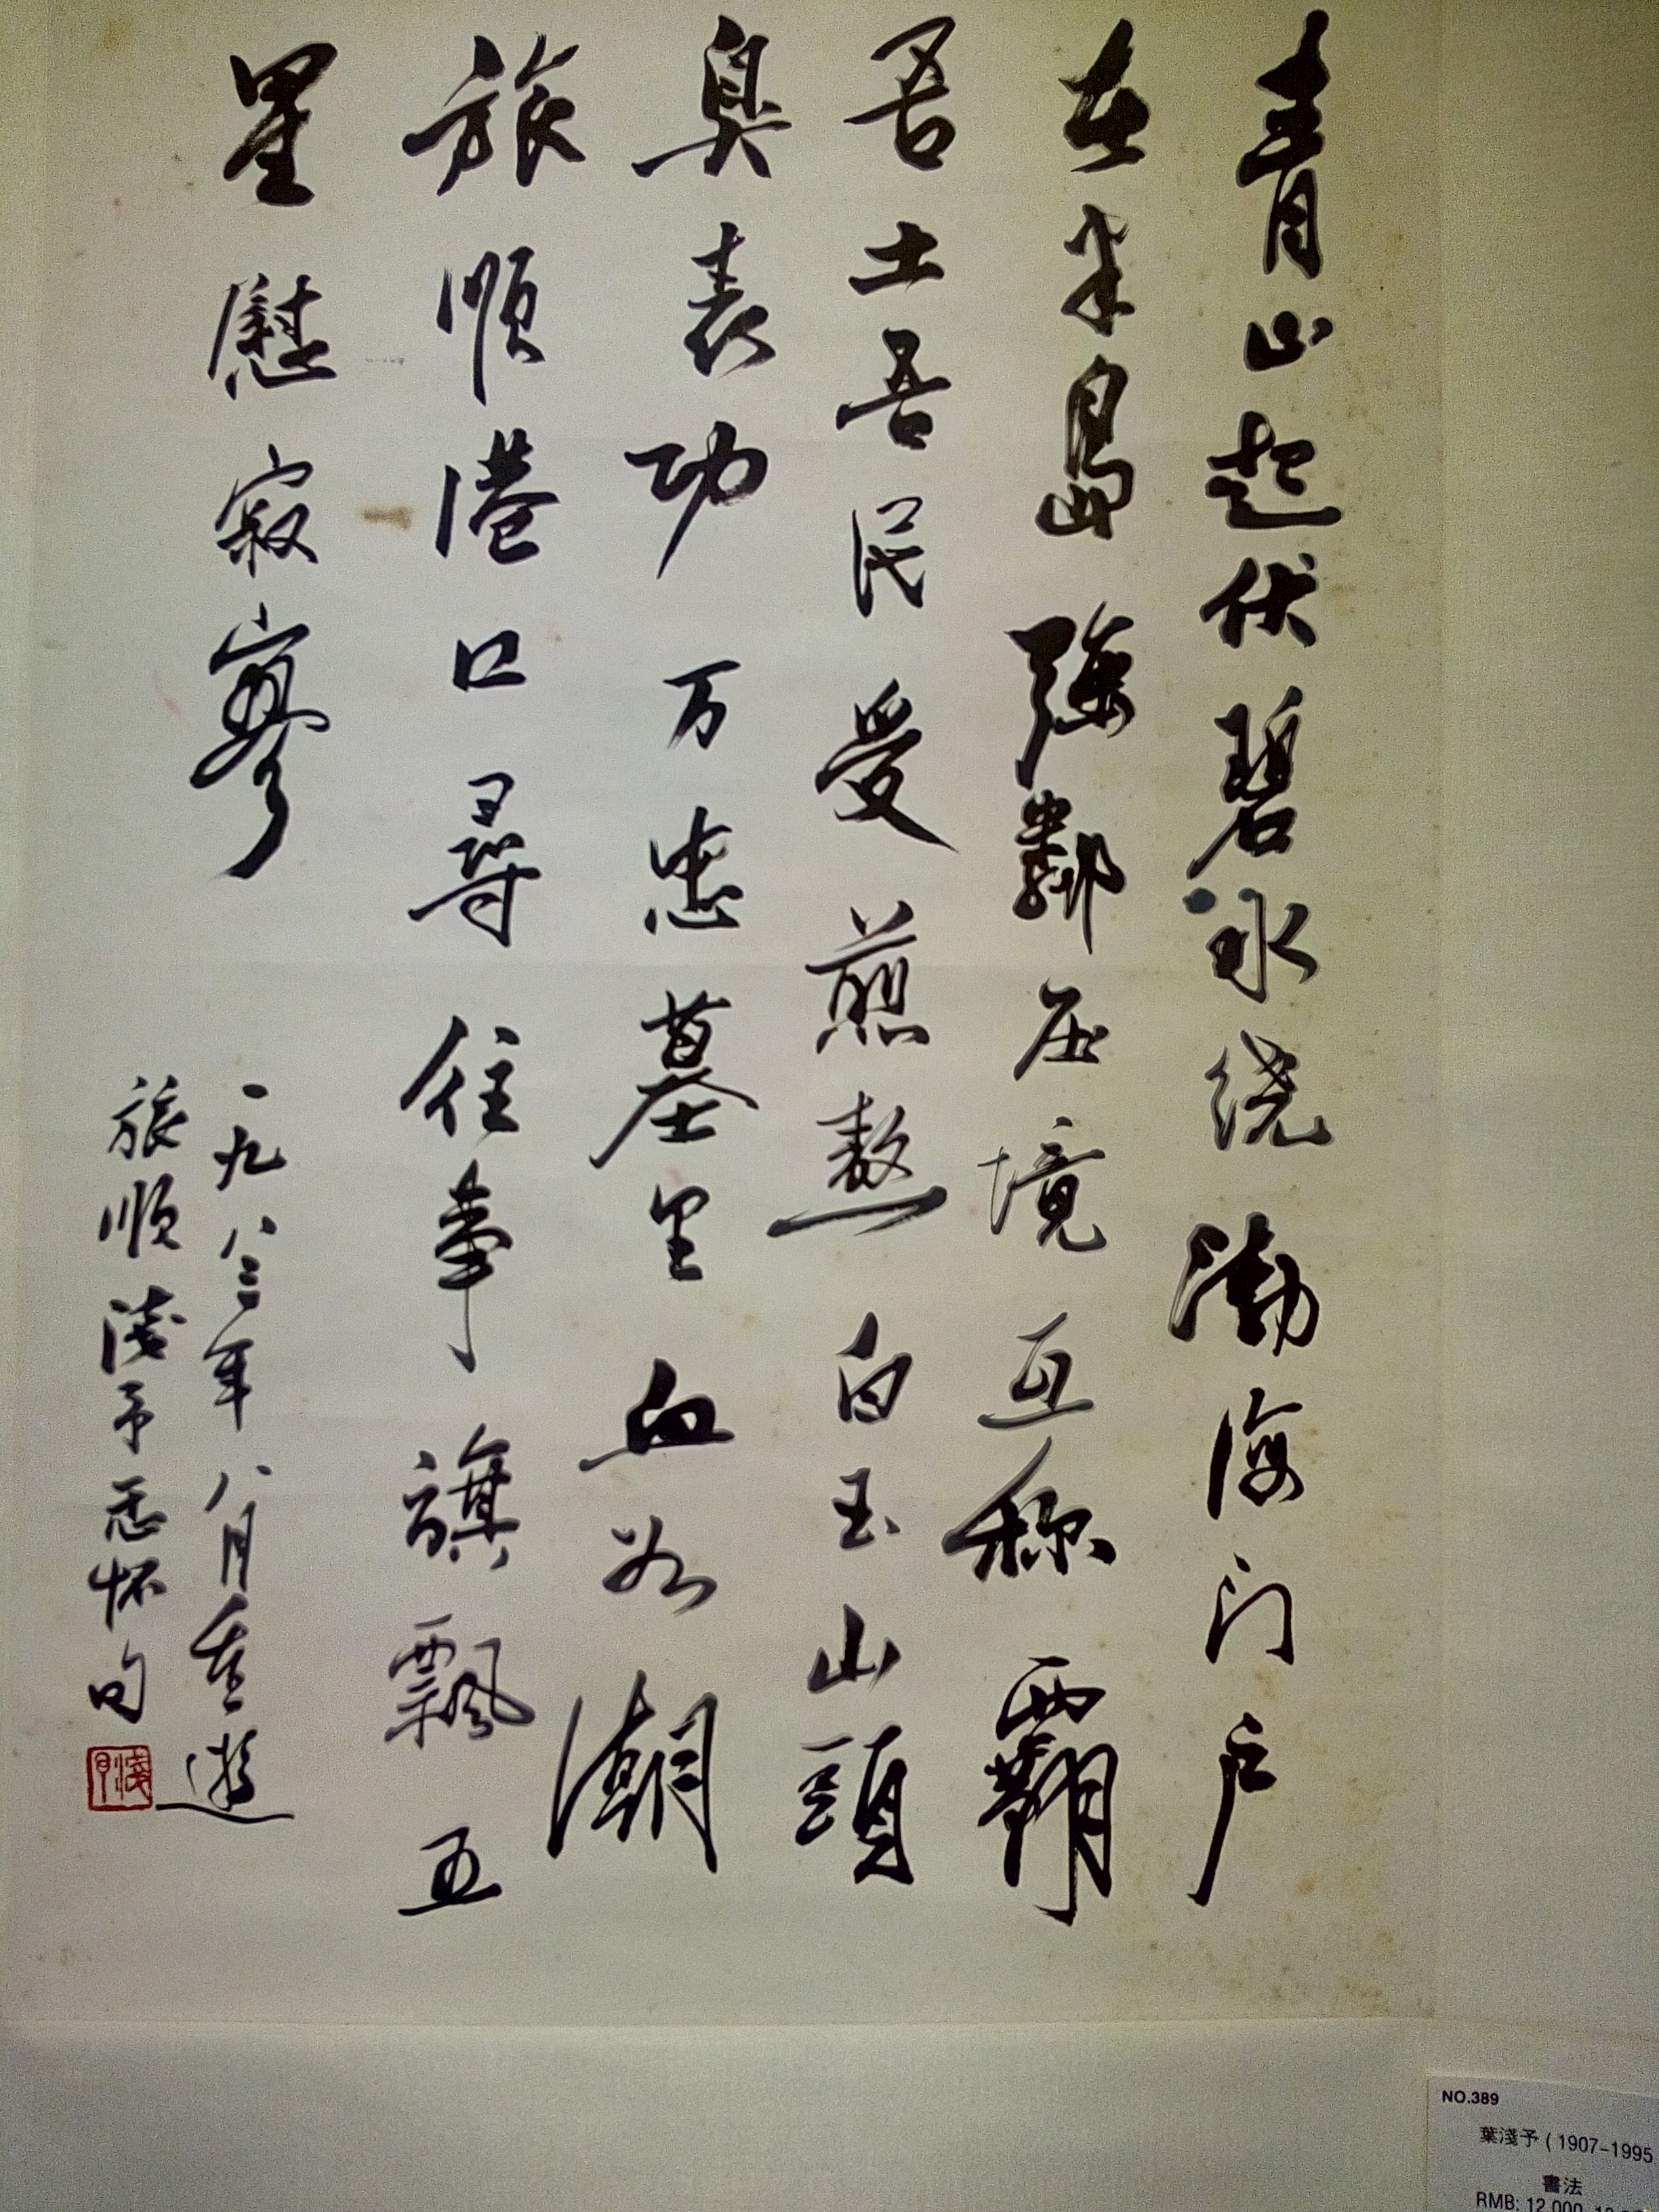 青山起伏碧水绕渤海门户
在半島強鄰压境互称霸
吾土吾民受煎熬白玉山頭
臭表功万忠墓里血如潮
旅順港口尋往事旗飄五
星慰寂寥
一九八三年八月重遊
旅順淺予志怀句
淺予
NO.389
葉淺予 ( 1907-1995
書法
RMB: 12,000